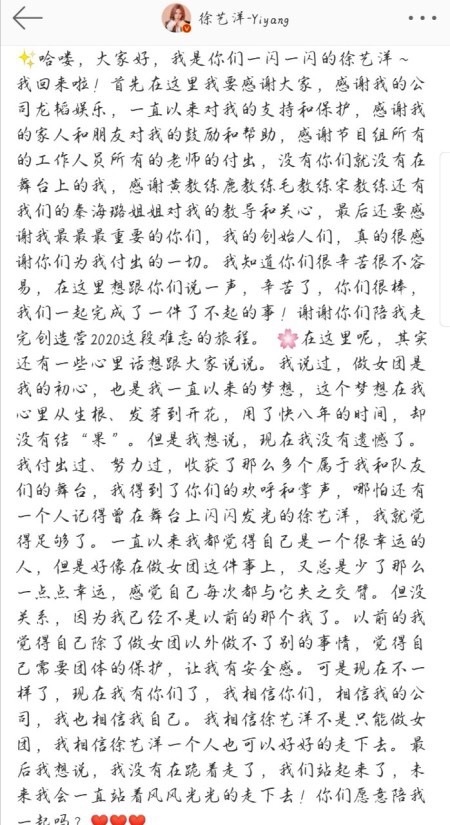 徐艺洋-Yiyang
✨哈喽,大家好,我是你们一闪一闪的徐艺洋~
我回来啦!首先在这里我要感谢大家,感谢我的公
司龙韬娱乐,一直以来对我的支持和保护,感谢我
的家人和朋友对我的鼓励和帮助,感谢节目组所有
的工作人员所有的老师的付出,没有你们就没有在
舞台上的我,感谢黄教练鹿教练毛教练宋教练还有
我们的秦海璐姐姐对我的教导和关心,最后还要感
谢我最最最重要的你们,我的创始人们,真的很感
谢你们为我付出的一切。我知道你们很辛苦很不容
易,在这里想跟你们说一声,辛苦了,你们很棒,
我们一起完成了一件了不起的事!谢谢你们陪我走
完创造营2020这段难忘的旅程。🌸在这里呢,其实
还有一些心里话想跟大家说说。我说过,做女团是
我的初心,也是我一直以来的梦想,这个梦想在我
心里从生根、发芽到开花,用了快八年的时间,却
没有结“果”。但是我想说,现在我没有遗憾了。
我付出过、努力过,收获了那么多个属于我和队友
们的舞台,我得到了你们的欢呼和掌声,哪怕还有
一个人记得曾在舞台上闪闪发光的徐艺洋,我就觉
得足够了。一直以来我都觉得自己是一个很幸运的
人,但是好像在做女团这件事上,又总是少了那么
一点点幸运,感觉自己每次都与它失之交臂。但没
关系,因为我已经不是以前的那个我了。以前的我
觉得自己除了做女团以外做不了别的事情,觉得自
己需要团体的保护,让我有安全感。可是现在不一
样了,现在我有你们了,我相信你们,相信我的公
司,我也相信我自己。我相信徐艺洋不是只能做女
团,我相信徐艺洋一个人也可以好好的走下去。最
后我想说,我没有在跪着走了,我们站起来了,未
来我会一直站着风风光光的走下去!你们愿意陪我
一起吗?❤❤❤